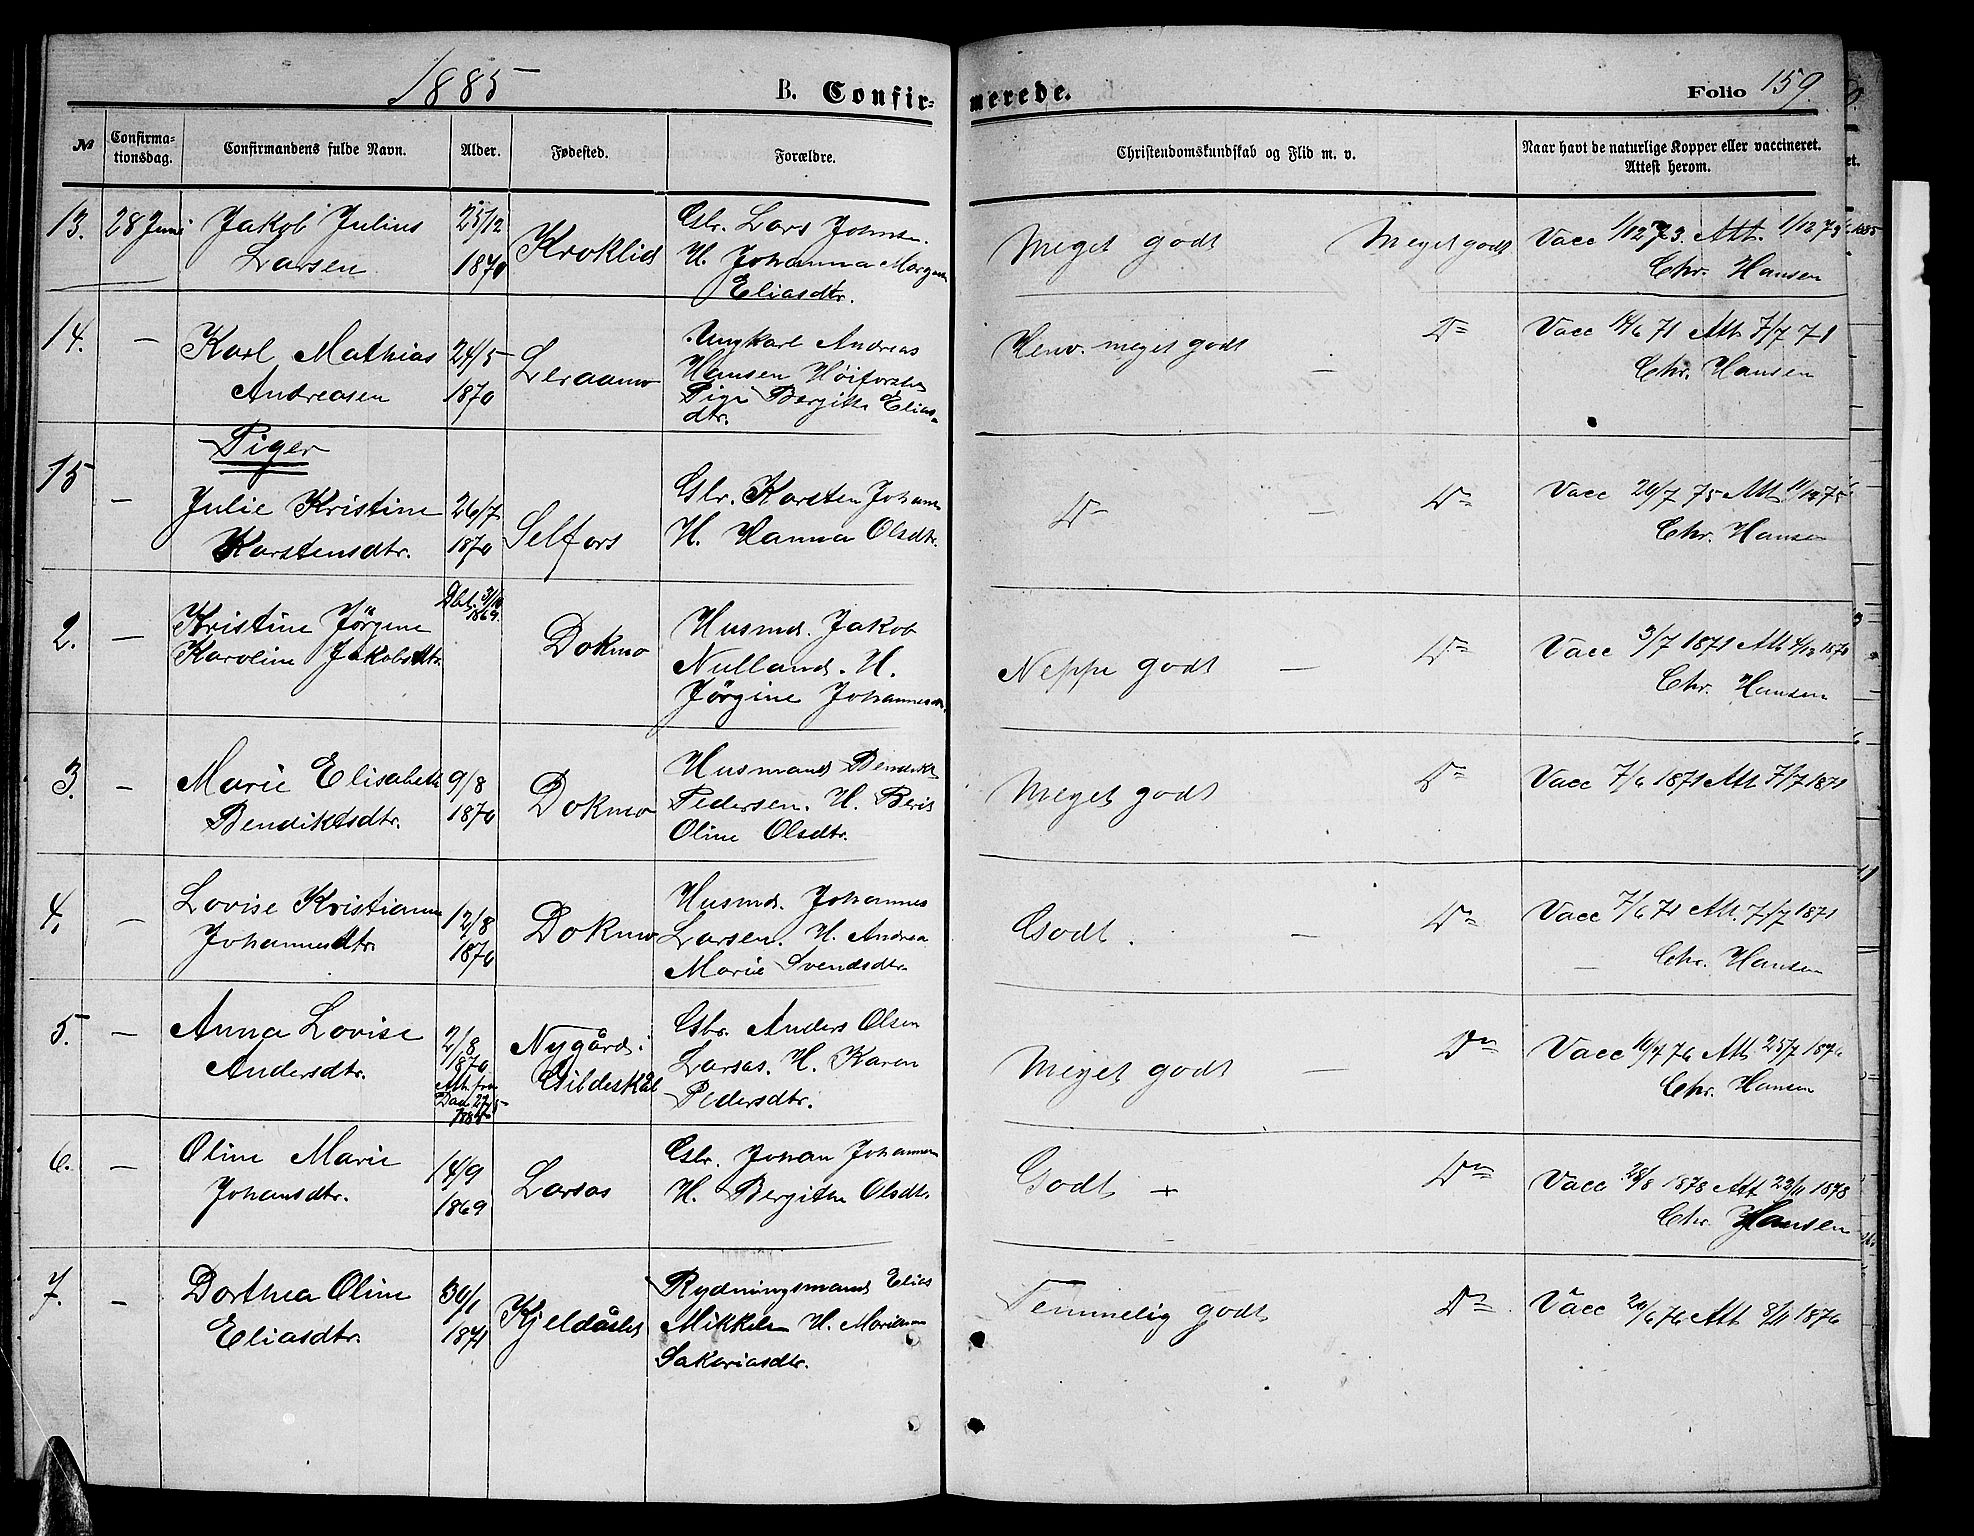 1885
B. Confirmerede.
Folio 159.
№ Confirmationsdag. Confirmandens fulde Navn. Alder. Fødested. Forældre. Christendomskundskab og Flid m. v. Naar havt de naturlige Kopper eller vaccineret. Attest herom.
13. 28 Juni Jakob Julius 25/12 Kroklid Gbr. Lars Johnsen. Meget godt Meget godt Vacc 1/12 73. Att. 1/12 73
Larsen 1870 H. Johanna Chr. Hansen
Eliasdtr.
14. — Karl Mathias 24/5 Leraamo Ungkarl Andreas Henv. meget godt — Do Vacc 14/6 71 Att 7/7 71
Andreasen 1870 Hansen Chr. Hansen
Pige Bergitte Elias-
dtr.
Piger
15 — Julie Kristine 26/7 Selfors Gbr. Karsten Johans Do — Do Vacc 20/7 75 Att 11/12 75
Karstensdtr. 1870 H. Hanna Olsdtr. Chr. Hansen
2. — Kristine Jörgine 1869 Dokmo Husmd. Jakob Neppe godt — Do Vacc 3/7 1871 Att
Karoline Jakobsdtr. Nulland. H. Chr. Hansen
Jörgine Johannesdtr.
3. — Marie Elisabeth 9/8 Dokmo Husmand Bendikt Meget godt Do Vacc 7/6 1871 Att 7/7 1871
Bendiktsdtr. 1870 Pedersen. H. Berit
Oline Olsdtr.
4. — Lovise Kristianne 12/8 Dokmo Husmd. Johannes Godt. — Do Vacc 7/6 71 Att. 7/7 1871
Johannesdtr. 1870 Larsen. H. Andrea — Chr. Hansen
Marie Svendsdtr.
5. — Anna Lovise 2/8 Nygård i Gbr. Anders Olsen Meget godt — Do Vacc 10/7 76 Att 25/7 1876
Andersdtr. 1870 Gildeskål Larsos. H. Karen Chr. Hansen
Att. fra Pedersdtr.
1885
6. — Oline Marie 14/9 Larsos Gbr. Johan Johannesen Godt — Do Vacc 28/8 1878 Att 23/11 1878
Johansdtr. 1869 H. Bergitta Olsdtr. Chr. Hansen
7. — Dorthea Oline 30/1 Rydningsmand Elias Temmelig godt Do Vacc 20/6 76 Att 8/11 1876
Eliasdtr. 1871 Mikkelsen H.
Sakariasdtr.